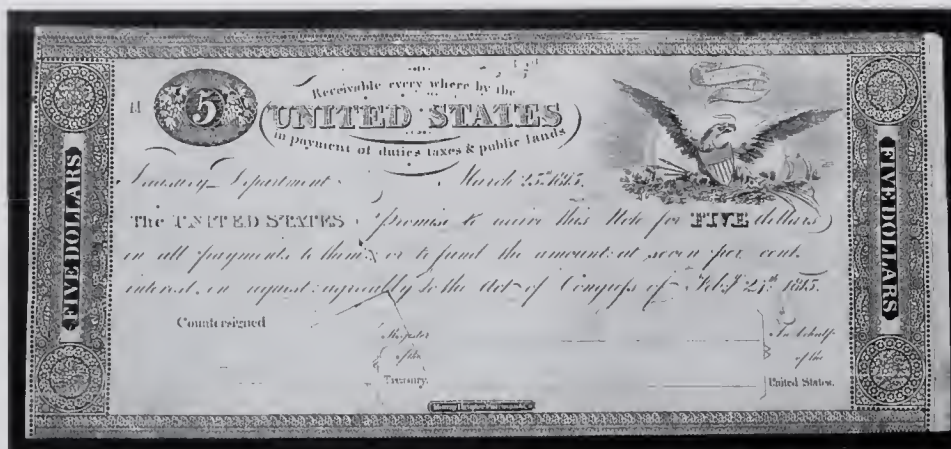 FIVE DOLLARS
5
Receivable every where by the
UNITED STATES
in payment of duties taxes & public lands
Treasury Department March 25th 1815.
The UNITED STATES promise to receive this Note for FIVE dollars
in all payments to them; or to fund the amount at seven per cent.
interest, on request: agreeably to the Act of Congress of Feb.y 24th 1815.
Countersigned
Register
of the
Treasury.
In behalf
of the
United States.
FIVE DOLLARS